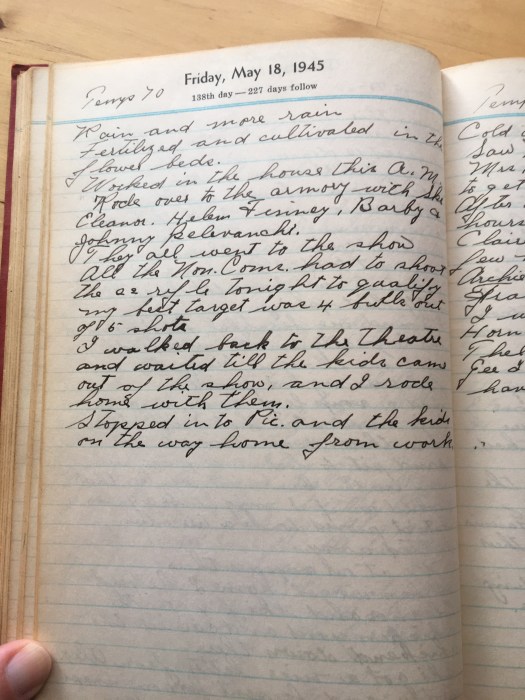 Friday, May 18, 1945
138th day — 227 days follow
Temp 70
Rain and more rain
Fertilized and cultivated in the
flower beds.
Worked in the house this A.M.
Rode over to the armory with
Eleanor. Helen Finney, Barby &
Johnny
They all went to the show
All the Non. Coms. had to shoot
the 22 rifle tonight to qualify
my best target was 4 bulls out
of 5 shots
I walked back to the theatre
and waited till the kids came
out of the show, and I rode
home with them.
Stopped in to Pic. and the kids
on the way home from work.
Temp
Cold
Saw
Mrs.
to get
After
hours
Clair
few
Archie
I w
Horn
The
Gee I
hav